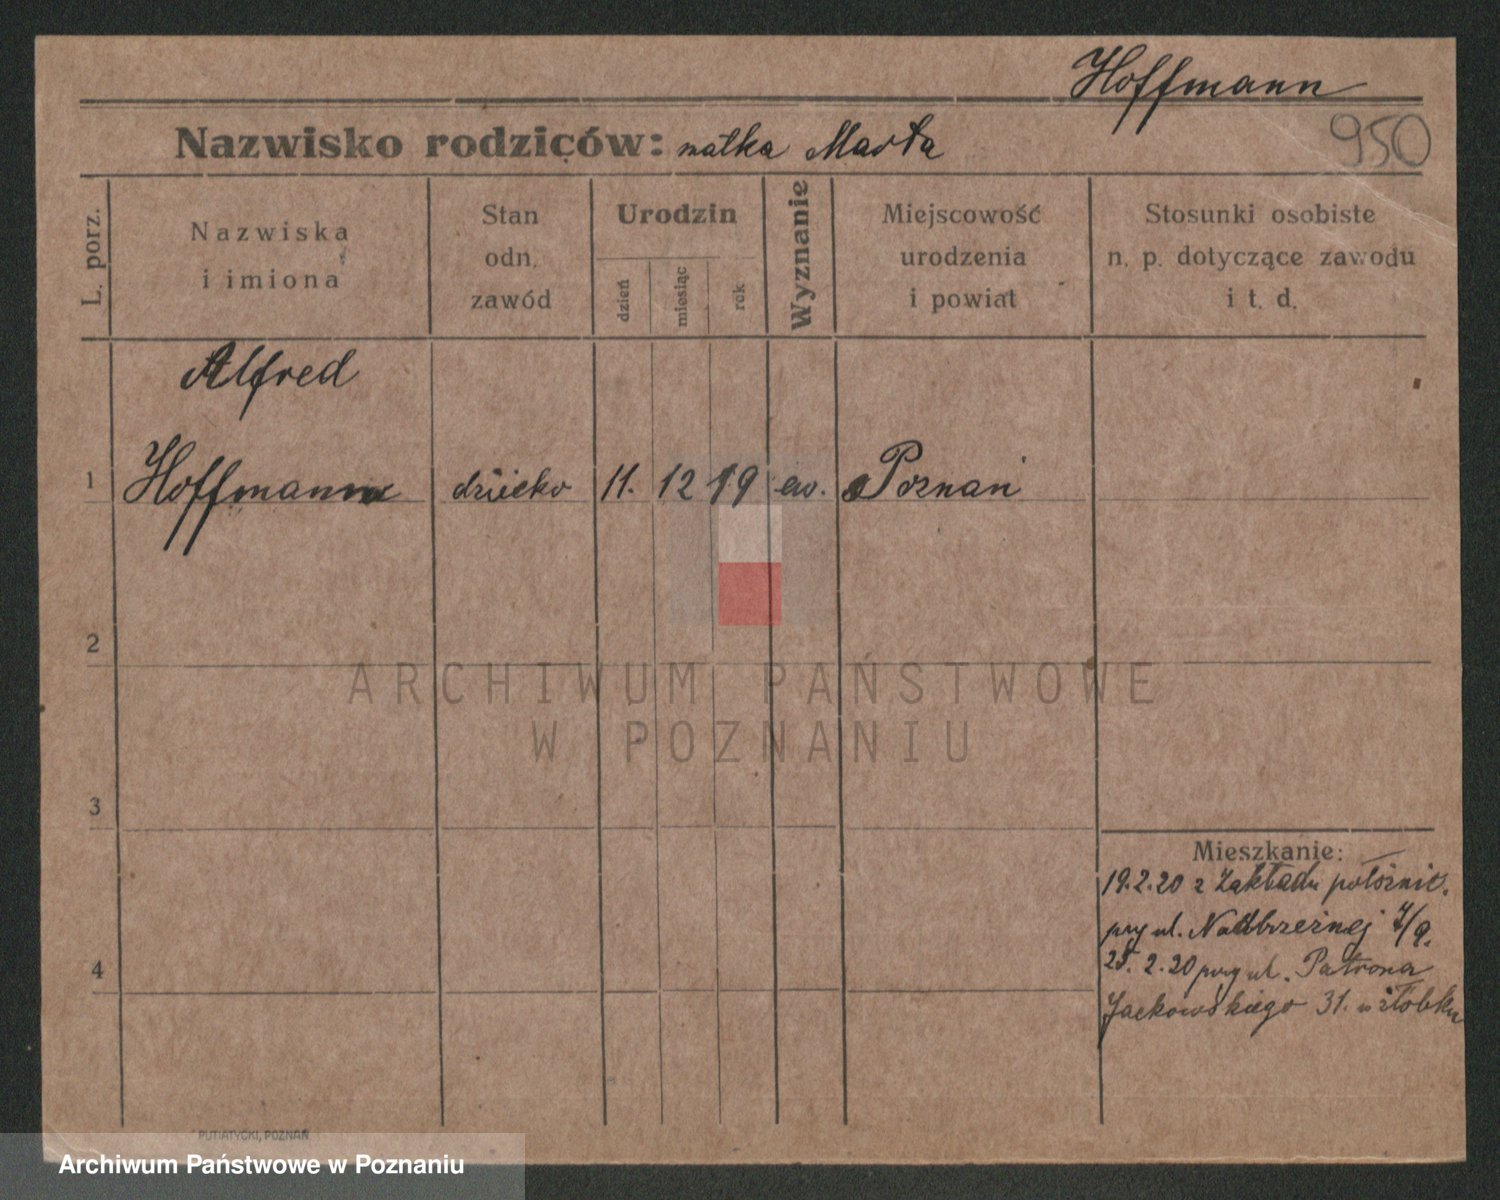 Hoffmann
950
Nazwisko rodziców: matka Marta
L. porz.
Nazwiska
i imiona
Stan
odn.
zawód
Urodzin
dzień
miesiąc
rok
Wyznanie
Miejscowość
urodzenia
i powiat
Stosunki osobiste
n. p. dotyczące zawodu
i t. d.
Alfred
1 Hoffmann dziecko 11. 12 19 ew. Poznań
2
3
4
Mieszkanie:
19.2.20 z Zakładu położnic.
przy ul. Nadbrzeżnej 7/9.
25.2.20 przy ul. Patrona
Jackowskiego 31. w żłóbku
PUTIATYCKI, POZNAŃ
ARCHIWUM PAŃSTWOWE
W POZNANIU
Archiwum Państwowe w Poznaniu